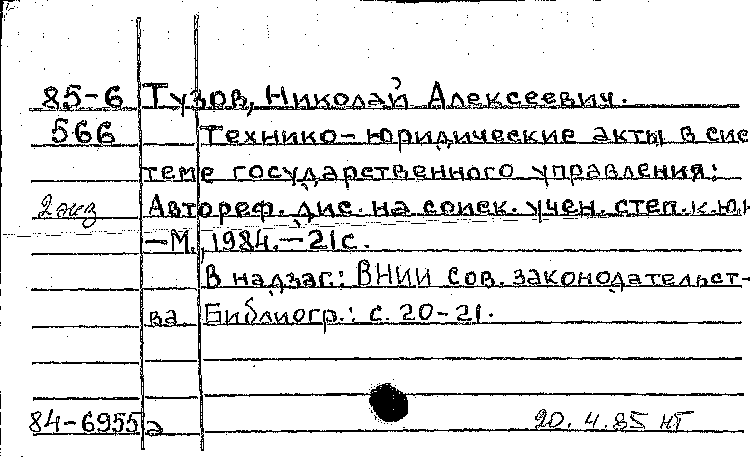 85-6 Тузов, Николай Алексеевич.
566 Технико-юридические акты в сис
теме государственного управления:
2 экз Автореф. дис. на соиск. учен. степ. к.ю.н
—М., 1984.—21с.
В надзаг.: ВНИИ сов. законодательст-
ва. Библиогр.: с. 20-21.
84-6955а 20.4.85 НТ